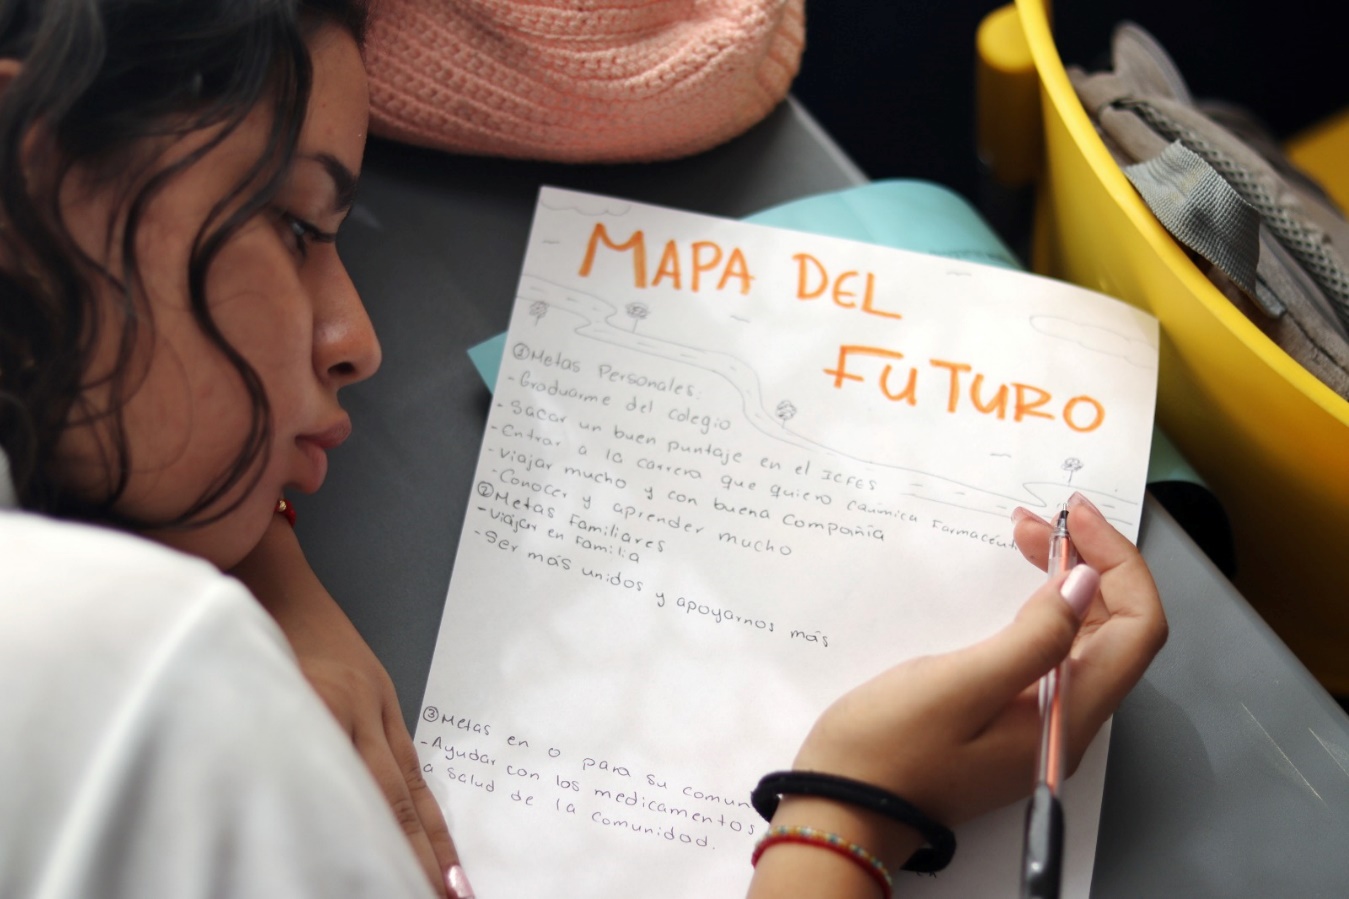 MAPA DEL
FUTURO
① Metas Personales:
- Graduarme del colegio
- Sacar un buen puntaje en el ICFES
- Entrar a la carrera que quiero Química Farmacéuti
- Viajar mucho y con buena Compañia
- Conocer y aprender mucho
② Metas Familiares
- Viajar en Familia
- Ser más unidos y apoyarnos más
③ Metas en o para su comun
- Ayudar con los medicamentos
a salud de la comunidad.